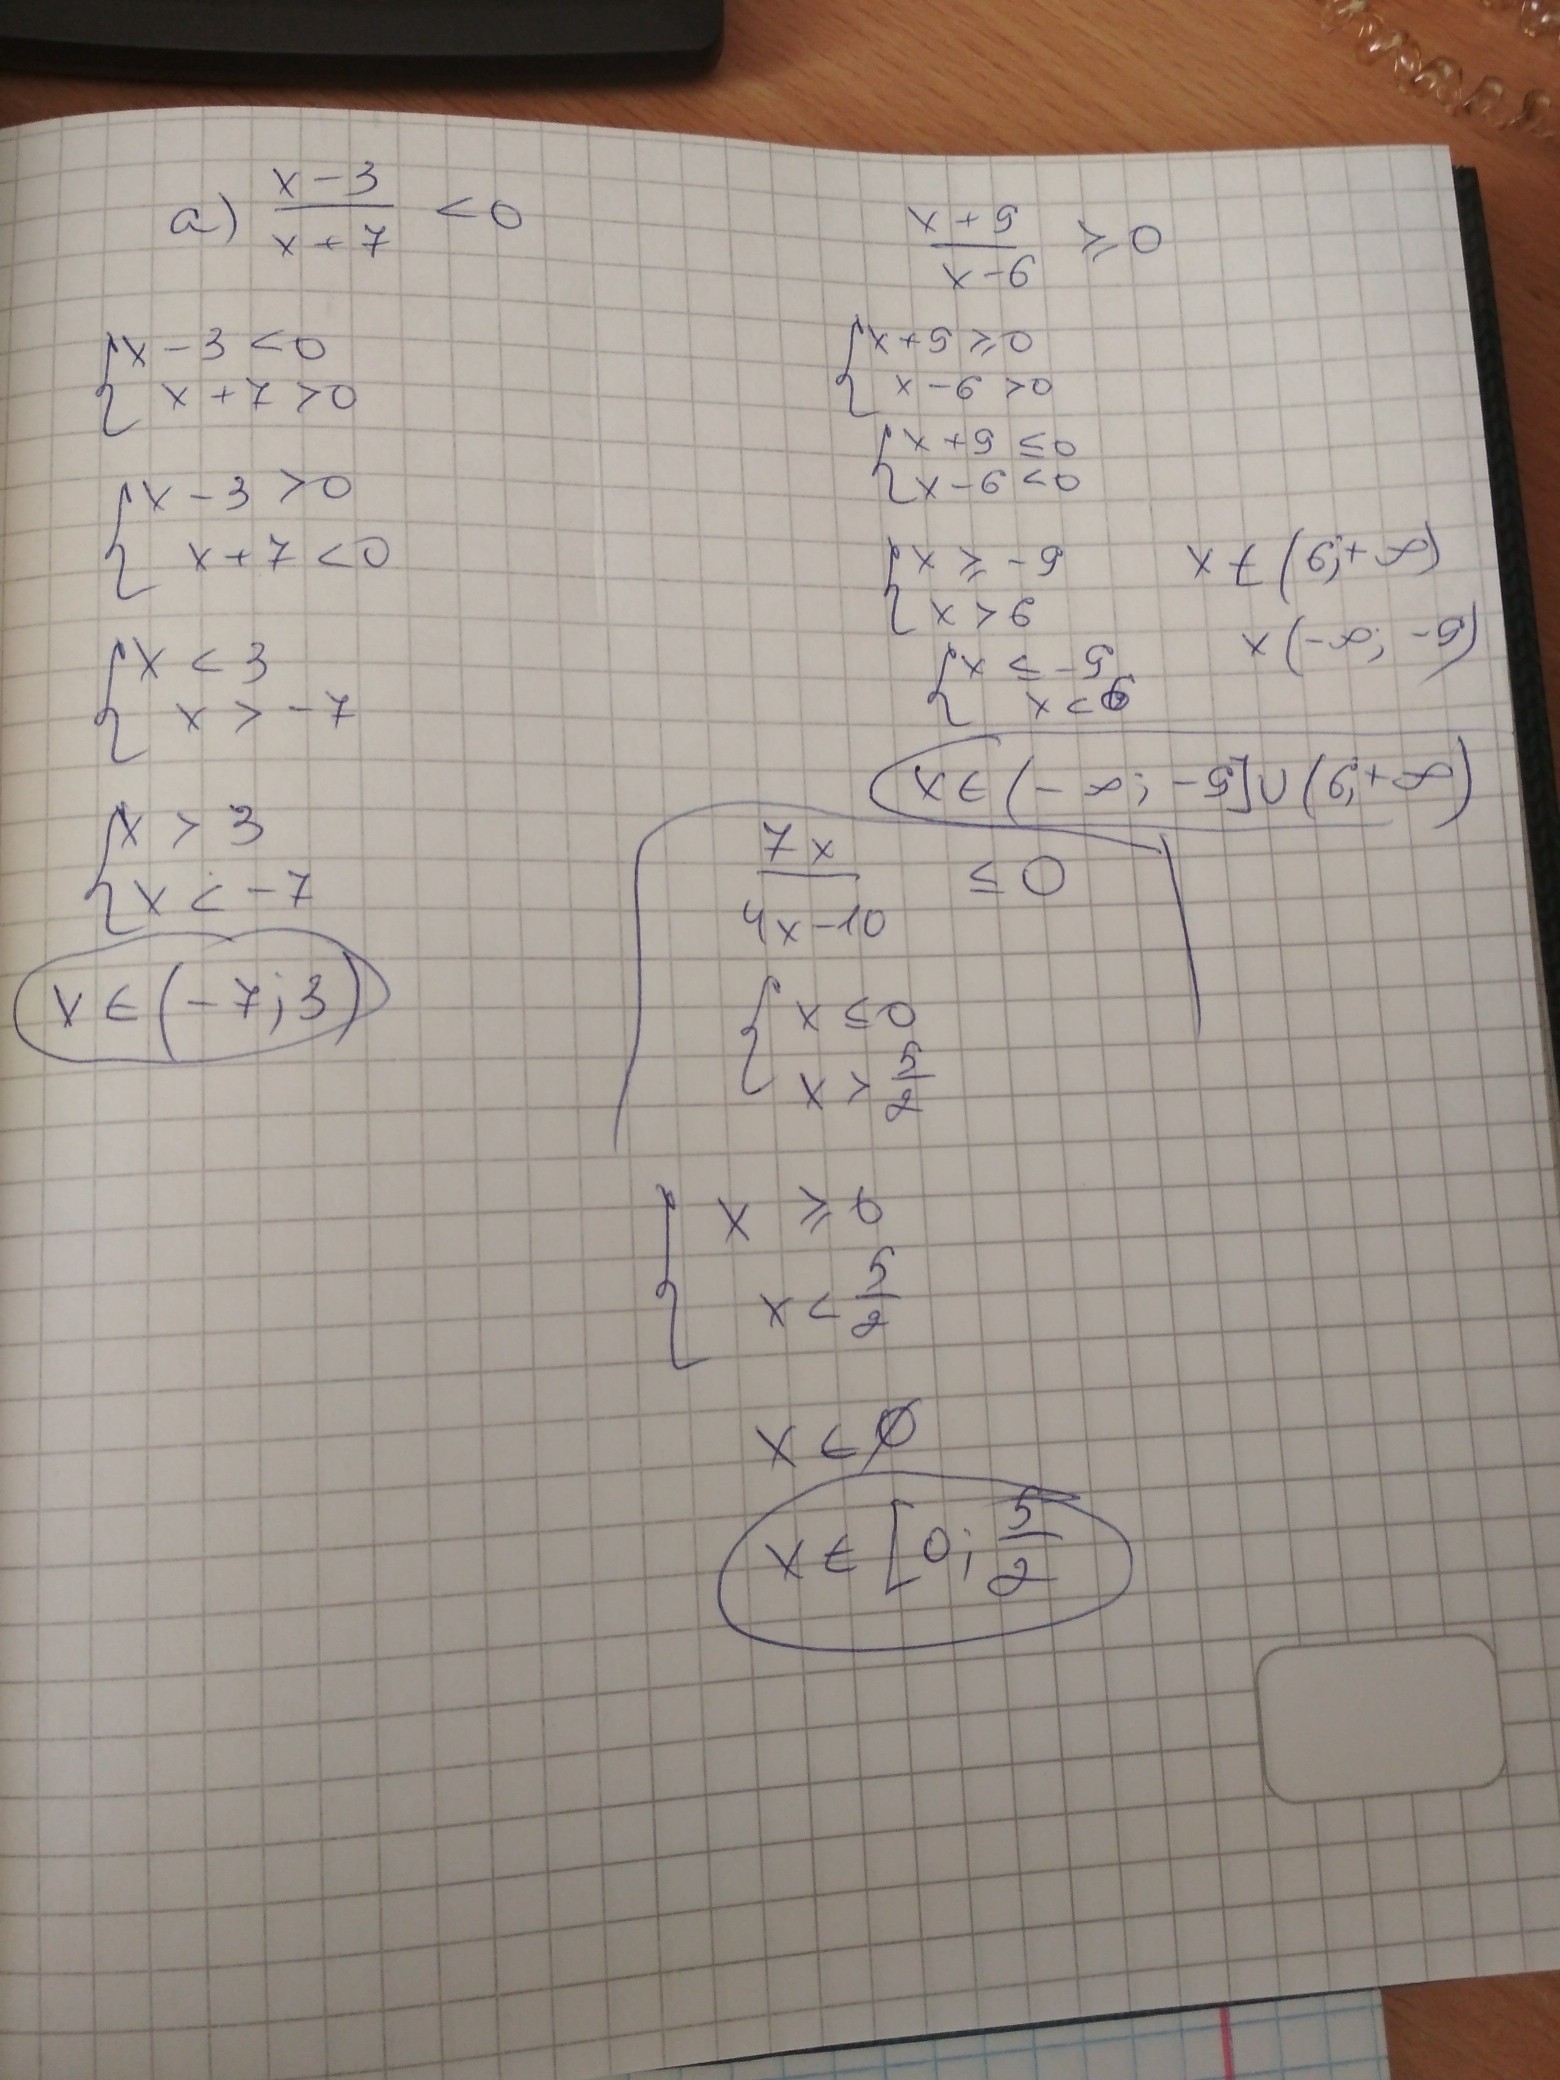 a) x-3 / x+7 <0
{ x-3 <0
x+7 >0
{ x-3 >0
x+7 <0
{ x < 3
x > -7
{ x > 3
x < -7
x ∈ (-7; 3)
x+5 / x-6 ⩾ 0
{ x+5 ⩾ 0
x-6 >0
{ x+5 ≤ 0
x-6 <0
{ x ⩾ -5
x > 6
x ∈ (6; +∞)
{ x ≤ -5
x < 6
x (-∞; -5)
x ∈ (-∞; -5] ∪ (6; +∞)
7x / 4x-10 ≤ 0
{ x ≤ 0
x > 5/2
{ x ⩾ 0
x < 5/2
x ∈ Ø
x ∈ [0; 5/2